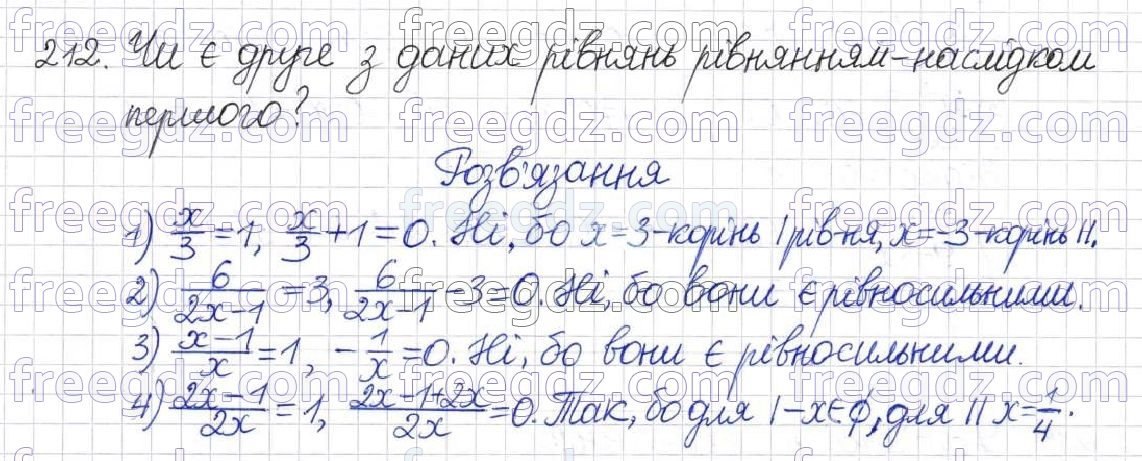 212. Чи є друге з даних рівнянь рівнянням-наслідком
першого?
Розв'язання
1) x/3 = 1, x/3 + 1 = 0. Ні, бо x = 3 - корінь I рів-ня, x = -3 - корінь II.
2) 6/(2x-1) = 3, 6/(2x-1) - 3 = 0. Ні, бо вони є рівносильними.
3) (x-1)/x = 1, - 1/x = 0. Ні, бо вони є рівносильними.
4) (2x-1)/2x = 1, (2x-1+2x)/2x = 0. Так, бо для I - x ∈ ϕ, для II x = 1/4.
freegdz.com freegdz.com freegdz.com freegdz.com